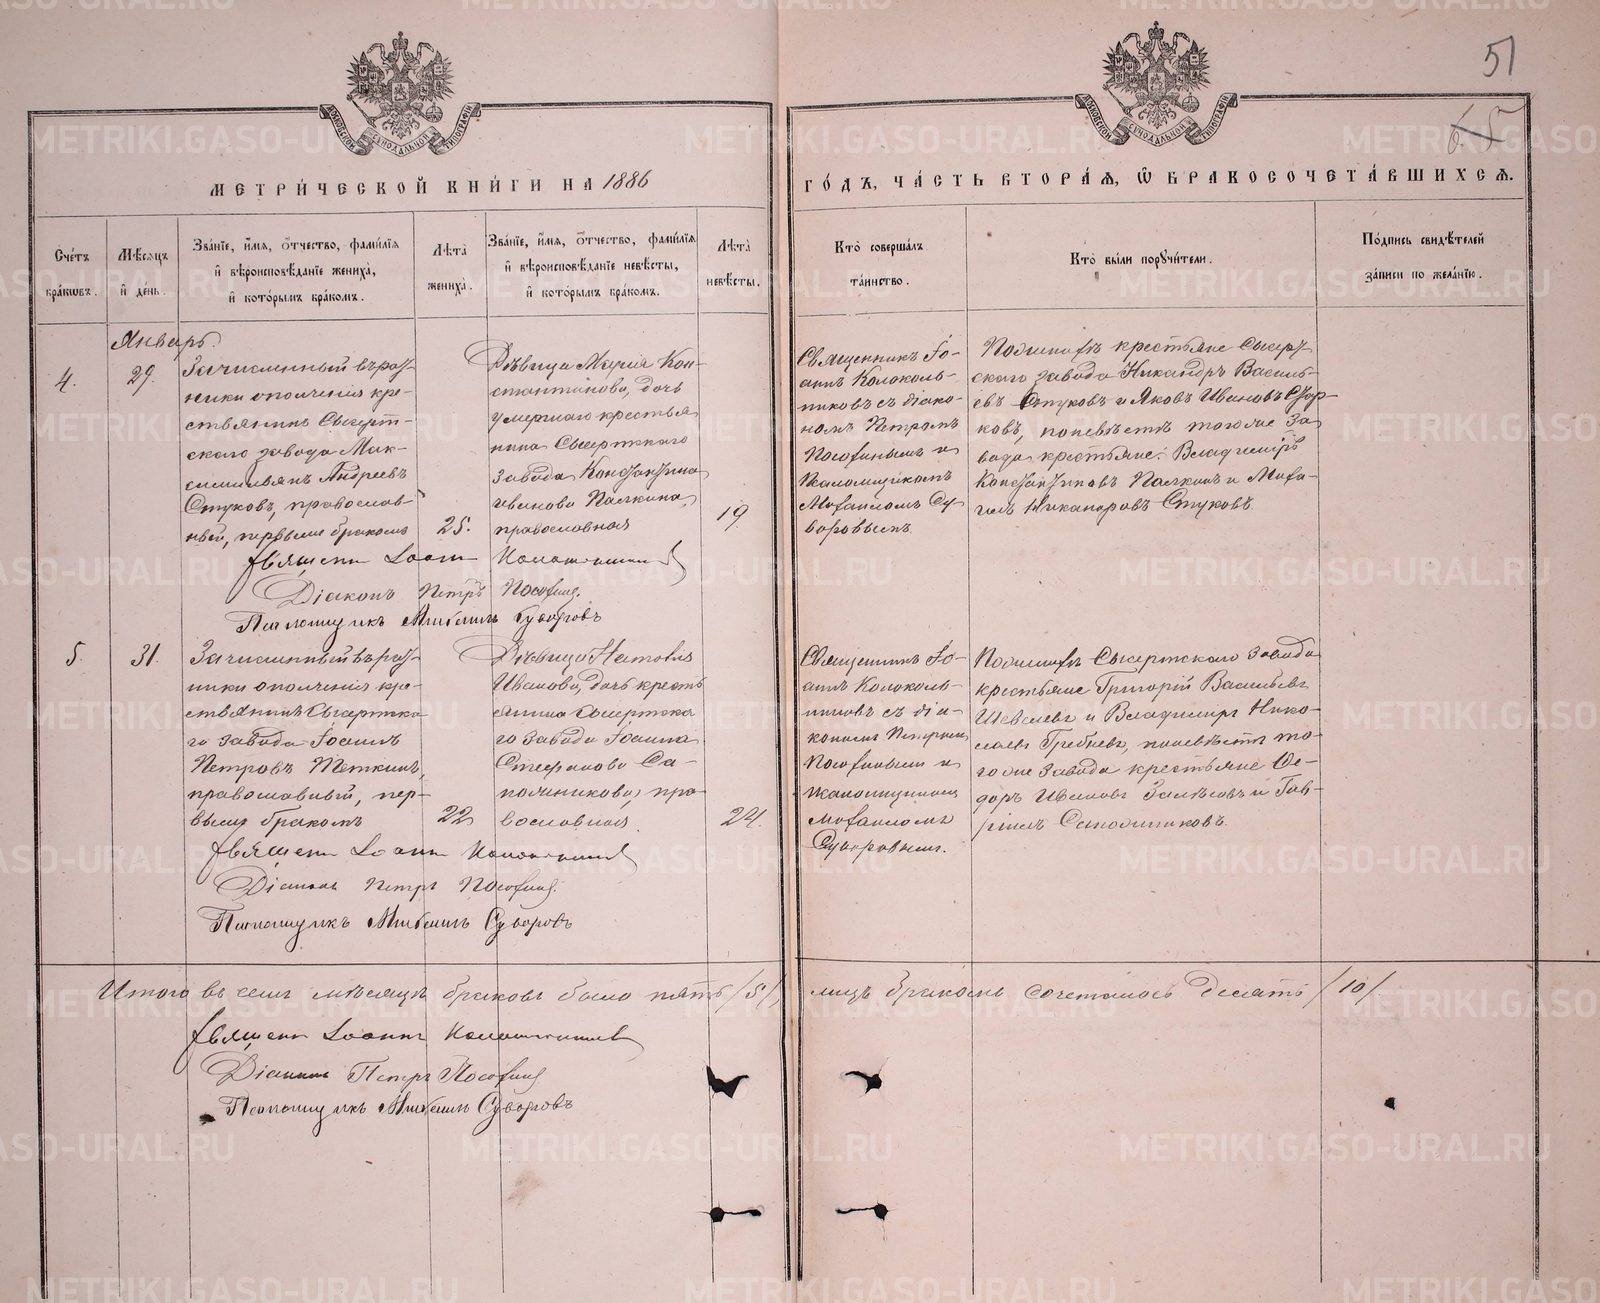 51
6. 5
МОСКОВСКОЙ СѴНОДАЛЬНОЙ ТИПОГРАФІИ
МОСКОВСКОЙ СѴНОДАЛЬНОЙ ТИПОГРАФІИ
МЕТРИ́ЧЕСКОЙ КНИ́ГИ НА 1886
ГО́ДЪ, ЧА́СТЬ ВТОРА́Ѧ, Ѽ БРАКОСОЧЕТА́ВШИХСѦ.
Сче́тъ бра́кѡвъ.
Мѣ́сѧцъ и҆ де́нь.
Зва́нїе, и҆́мѧ, ѻ҆́тчество, фами́лїѧ
и҆ вѣроисповѣ́данїе жениха̀,
и҆ кото́рымъ бра́комъ.
Лѣ́та жениха̀.
Зва́нїе, и҆́мѧ, ѻ҆́тчество, фами́лїѧ
и҆ вѣроисповѣ́данїе невѣ́сты,
и҆ кото́рымъ бра́комъ.
Лѣ́та невѣ́сты.
Кто̀ соверша́лъ
та́инство.
Кто̀ бы́ли порꙋчи́тели.
По́дпись свидѣ́телей
за́писи по жела́нїю.
Январь.
4.
29.
Зачисленный въ рат-
ники ополченія кре-
стьянинъ Сысерт-
скаго завода Мак-
симиліянъ Андреевъ
Стуковъ, православ-
ный, первымъ бракомъ
25.
Дѣвица Марія Кон-
стантинова, дочь
умершаго крестья
нина Сысертскаго
завода Константина
Иванова Палкина,
православная
19
Священникъ Іо-
аннъ Колоколь-
никовъ съ діако-
номъ Петромъ
и
псаломщикомъ
Михаиломъ Су
воровымъ
По женихѣ крестьяне Сысерт
скаго завода Никандръ Василь-
евъ Стуковъ и Яковъ Ивановъ
ковъ, по невѣстѣ тогоже За
вода крестьяне: Владиміръ
Константиновъ Палкинъ и Миха-
илъ Никаноровъ Стуковъ.
Священ Іоаннъ Колокольников
Діаконъ Петръ
Псаломщикъ Михаилъ Суворовъ
5.
31.
Зачисленный въ рат-
ники ополченія кре-
стьянинъ Сысертска-
го завода Іоаннъ
Петровъ Теткинъ,
православный, пер-
вымъ бракомъ
22
Дѣвица Наталія
Иванова, дочь кресть
янина Сысертска
го завода Іоанна
Стефанова Са-
пожникова, пра
вославная
24.
Священникъ Іо-
аннъ Колоколь-
никовъ съ діа-
кономъ Петромъ
и
псаломщикомъ
Михаиломъ
Суворовымъ.
По женихѣ Сысертскаго завода
крестьяне Григорій Васильевъ
Шевелевъ и Владиміръ Нико-
лаевъ Гребневъ, по невѣстѣ то-
гоже завода крестьяне Ѳе-
доръ Ивановъ Залѣсовъ и Гав-
ріилъ Сапожниковъ.
Священ Іоаннъ Колокольников
Діаконъ Петръ
Псаломщикъ Михаилъ Суворовъ
Итого въ семъ мѣсяцѣ браковъ было пять /5/, лицъ бракомъ сочеталось десять /10/
Священ Іоаннъ Колокольников
Діаконъ Петръ
Псаломщикъ Михаилъ Суворовъ
METRIKI.GASO-URAL.RU